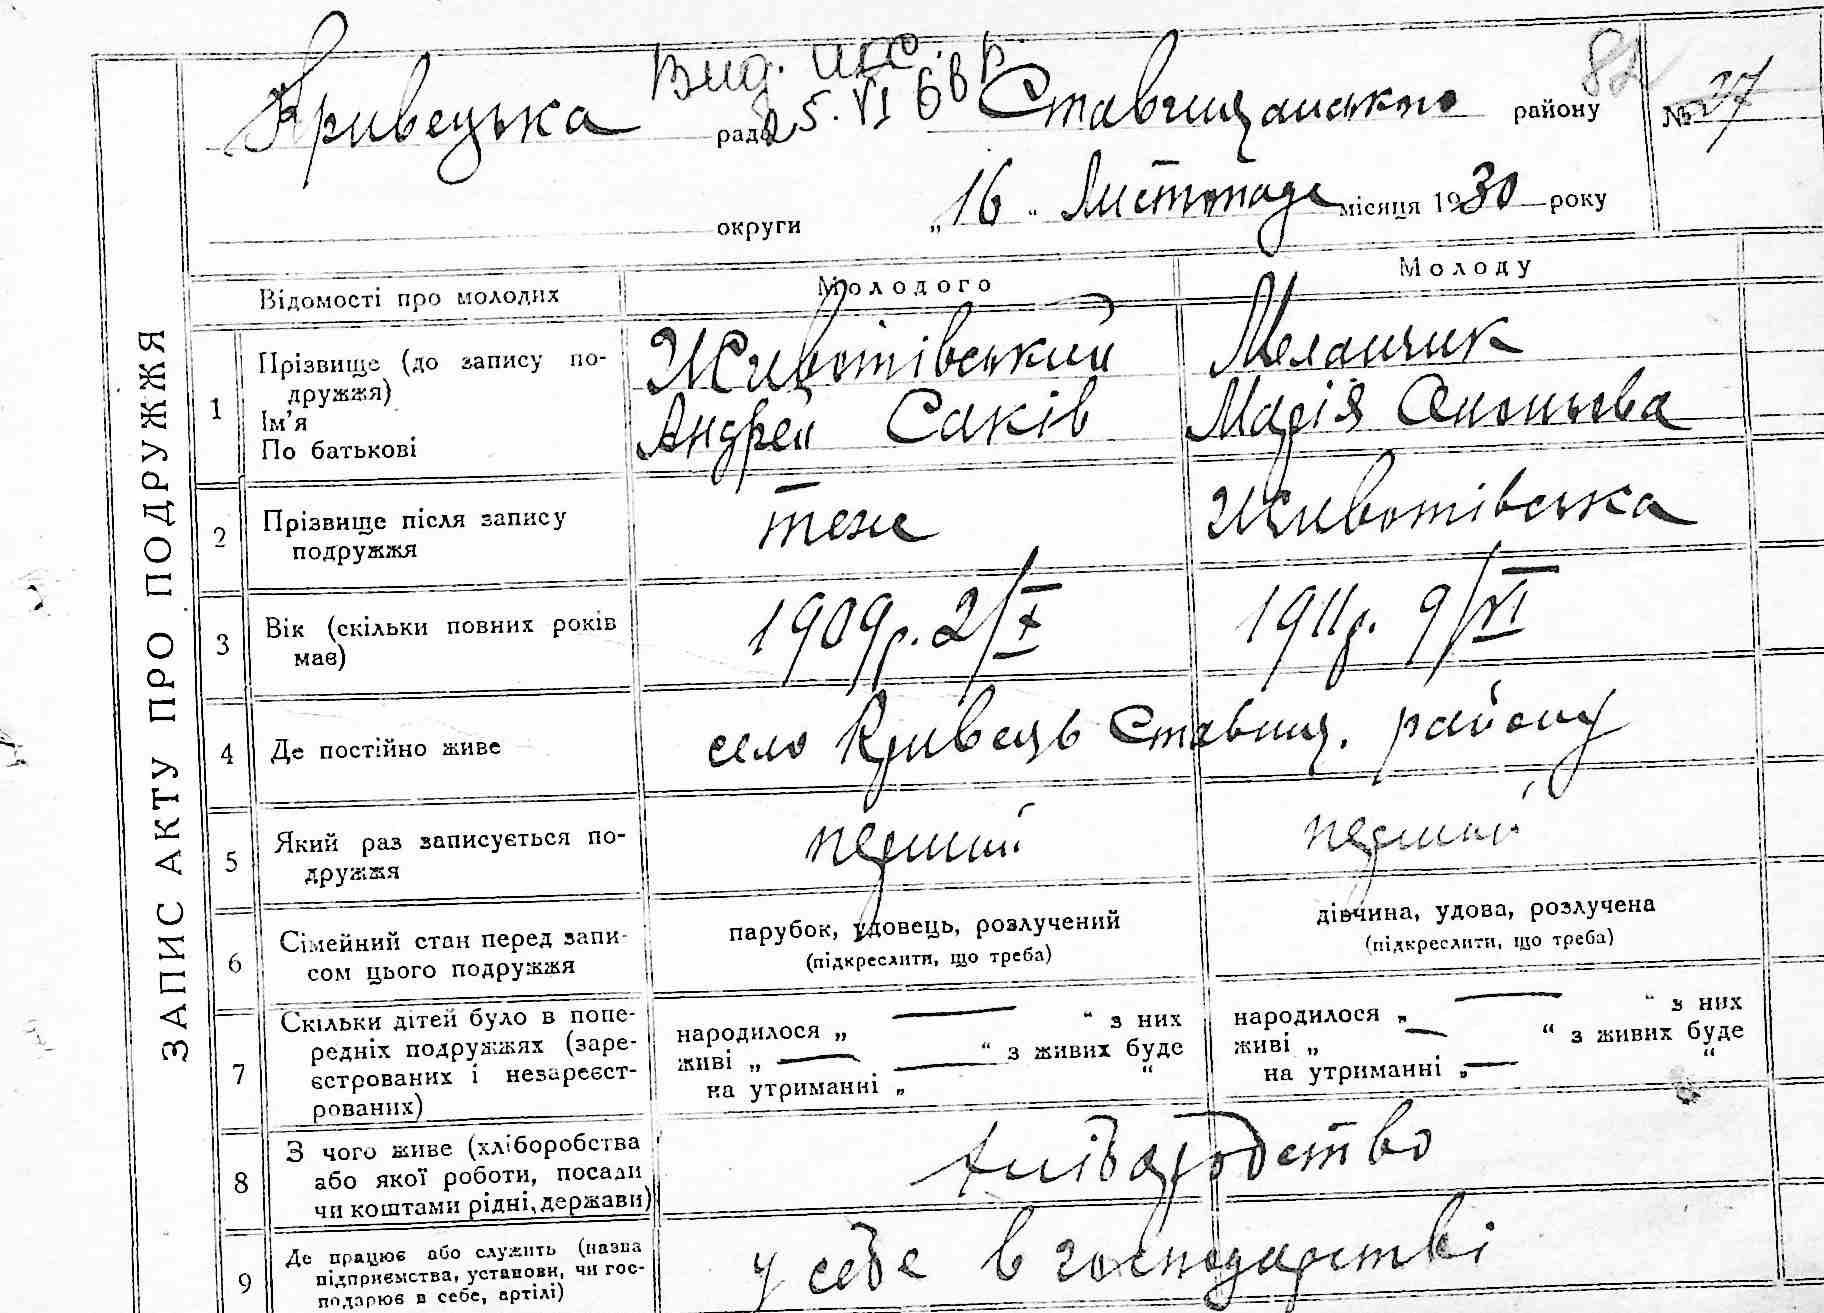 82
Вид.
Кривецька рада 25.VI 6 Ставищанського району № 27
округи „16“ Листопада місяця 1930 року
ЗАПИС АКТУ ПРО ПОДРУЖЖЯ
Відомості про молодих Молодого Молоду
1 Прізвище (до запису по-
дружжя)
Ім’я
По батькові
Животівський
Андрей Саків
Меланчик
Марія
2 Прізвище після запису
подружжя
теж
Животівська
3 Вік (скільки повних років
має)
1909р. 2/X
1911р. 9/VI
4 Де постійно живе
село Кривець Ставищ. району
5 Який раз записується по-
дружжя
перший
перший
6 Сімейний стан перед запи-
сом цього подружжя
парубок, удовець, розлучений
(підкреслити, що треба)
дівчина, удова, розлучена
(підкреслити, що треба)
7 Скільки дітей було в попе-
редніх подружжях (заре-
єстрованих і незареєст-
рованих)
народилося „ — “ з них
живі „ — “ з живих буде
на утриманні „ “
народилося „ — “ з них
живі „ — “ з живих буде
на утриманні „ — “
8 З чого живе (хліборобства
або якої роботи, посади
чи коштами рідні, держави)
хліборобство
9 Де працює або служить (назва
підприємства, установи, чи гос-
подарює в себе, артілі)
у себе в господарстві